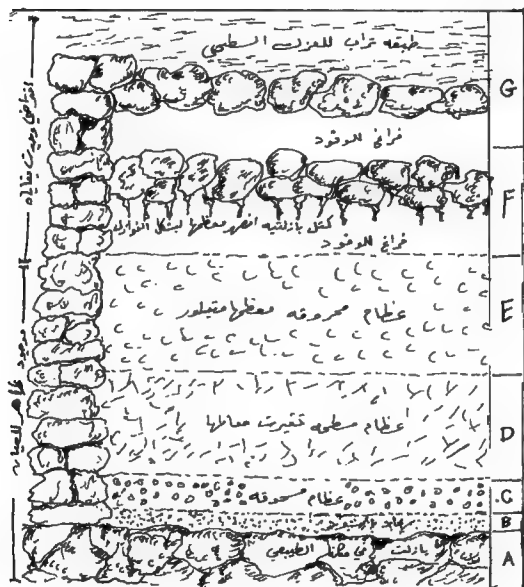 طبقه تراب للعزل السطحي
G
فراغ للوقود
F
كتل بازلتيه انصهر معظمها لبشكل النوازل
فراغ للوقود
E
عظام محروقه معظمها متبلور
D
عظام مسطحه تغيرت معالمها
C
عظام مسحوقه
B
A
بازلت في مكانه الطبيعي
موجود ظاهر للعيان